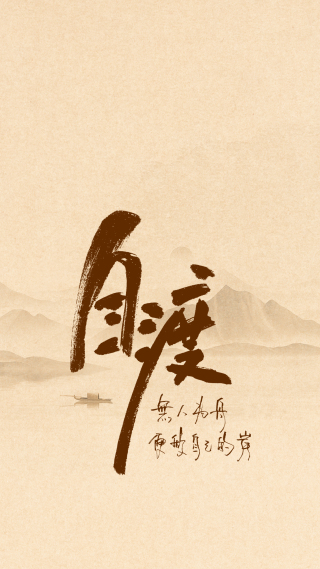 自渡
無人为舟
便做自己的岸